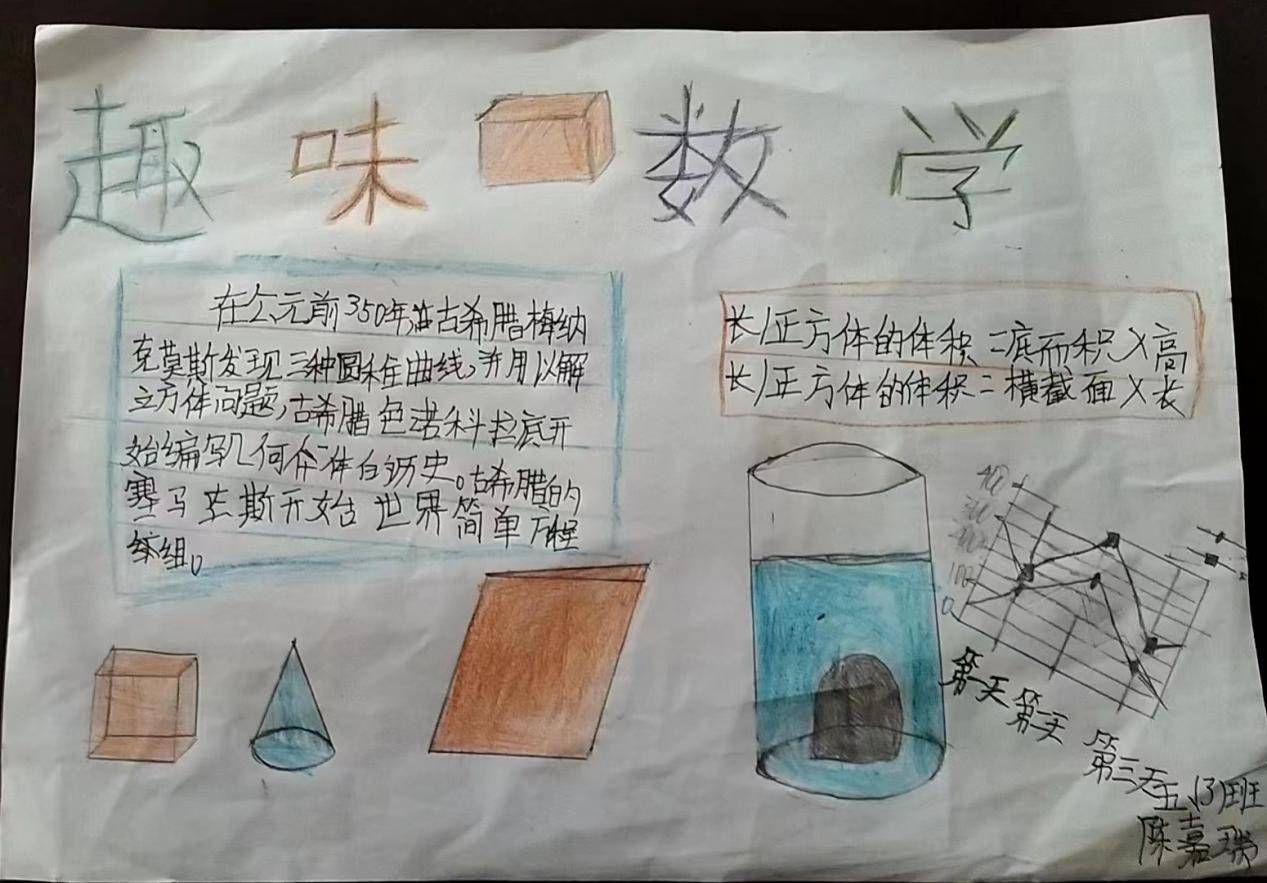 趣味数学
在公元前350年前古希腊梅纳
克莫斯发现三种圆锥曲线,并用以解
立方体问题,古希腊色诺科拉底开
始编写几何个体的历史。古希腊的
塞马力斯开始世界简单方程
组。
长/正方体的体积=底面积×高
长/正方体的体积=横截面×长
400
300
200
100
0
第一天
第二天
第三天
五(3)班
陈嘉瑞